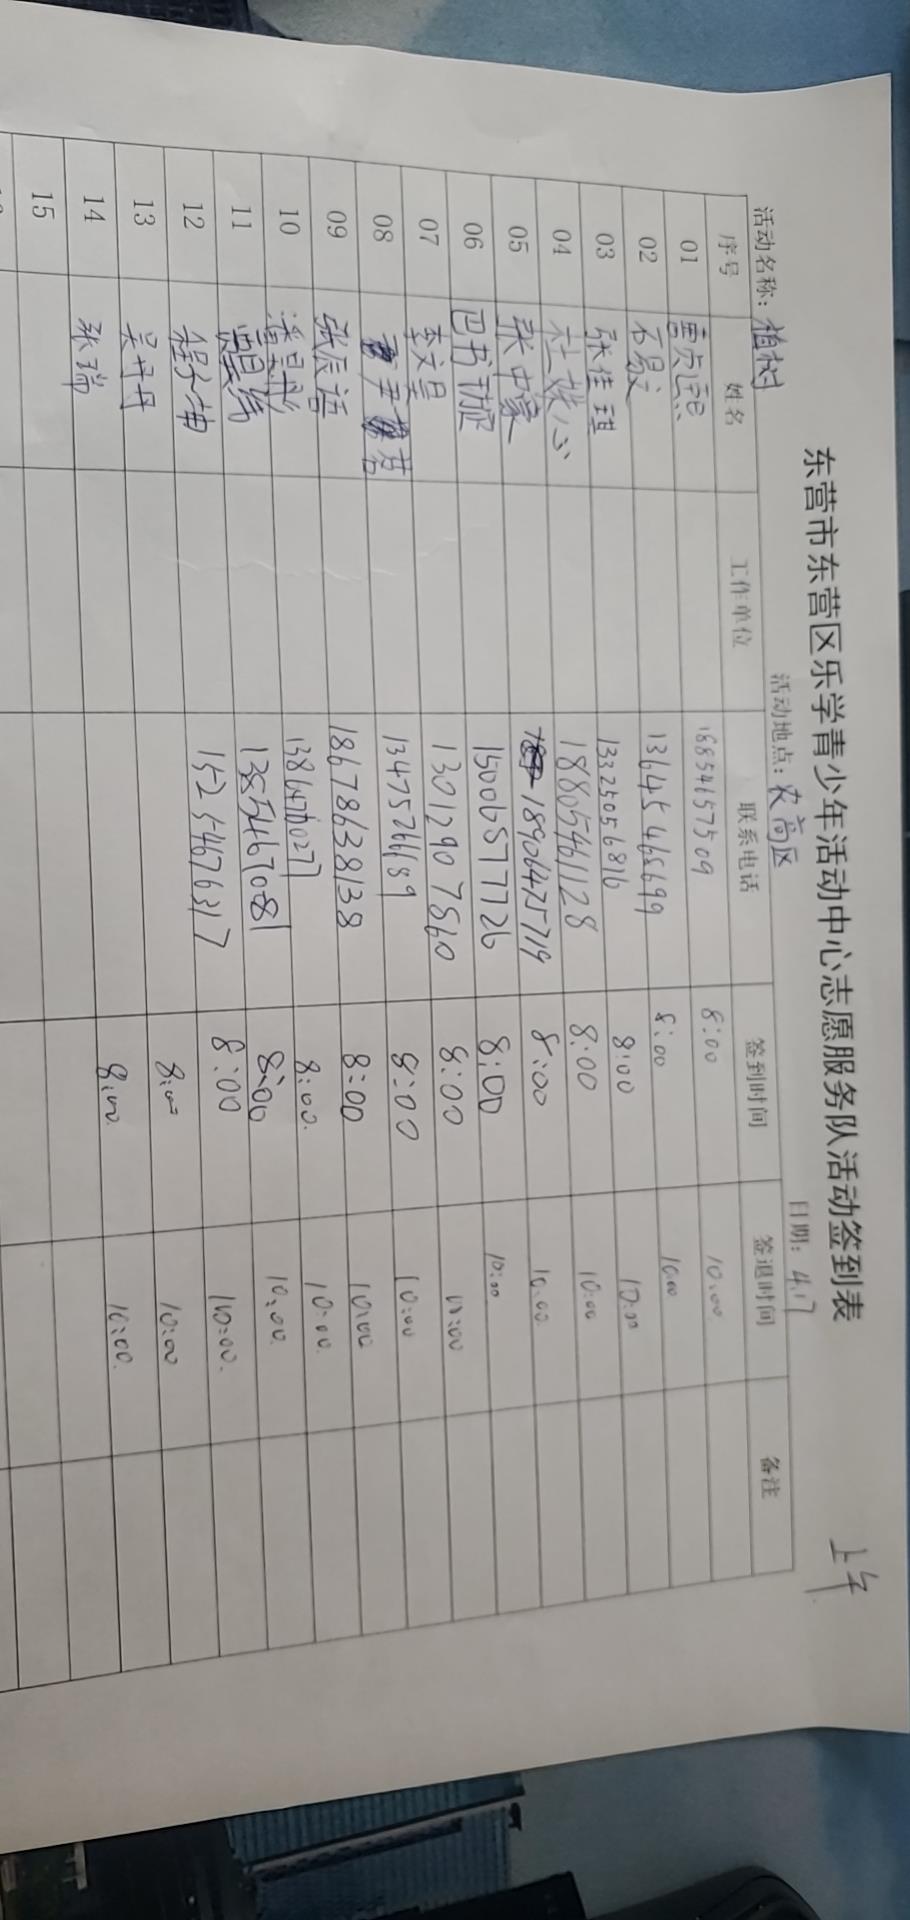 东营市东营区乐学青少年活动中心志愿服务队活动签到表
上午
活动名称：植树 活动地点：农高区 日期：4.17
序号 姓名 工作单位 联系电话 签到时间 签退时间 备注
01 18854657509 8:00 10:00
02 石易文 13645465699 8:00 10:00
03 张佳琪 13325056816 8:00 10:00
04 18805461128 8:00 10:00
05 张中豪 18906425719 8:00 10:00
06 巴书旋 15006577726 8:00 10:00
07 13012907560 8:00 10:00
08 8:00 10:00
09 张辰语 18678638138 8:00 10:00
10 8:00 10:00
11 13854670081 8:00 10:00
12 15254676317 8:00 10:00
13 吴丹丹 8:00 10:00
14 张瑞 8:00 10:00
15